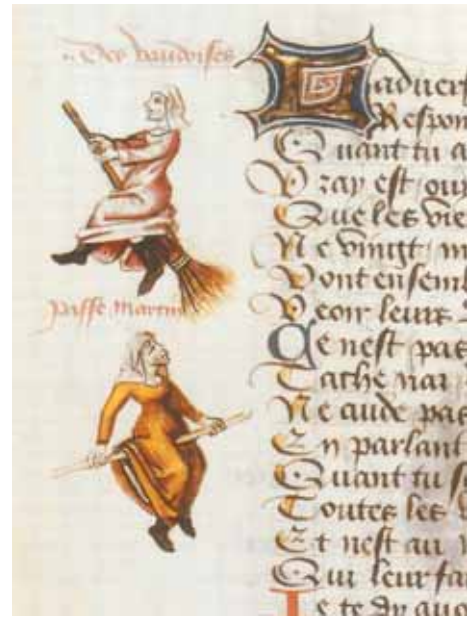 Des vaudoises
ladverf
Respon
Quant tu a
Vray est ouy
Que les vie
Ne vingt m
Vont ensem
Passe Martin
Veoir leurs
Ce nest pas
Tache nai
Ne aude pas
En parlant
Quant tu s
Toutes les
Et nest au
Qui leur fa
Ie te dy quo